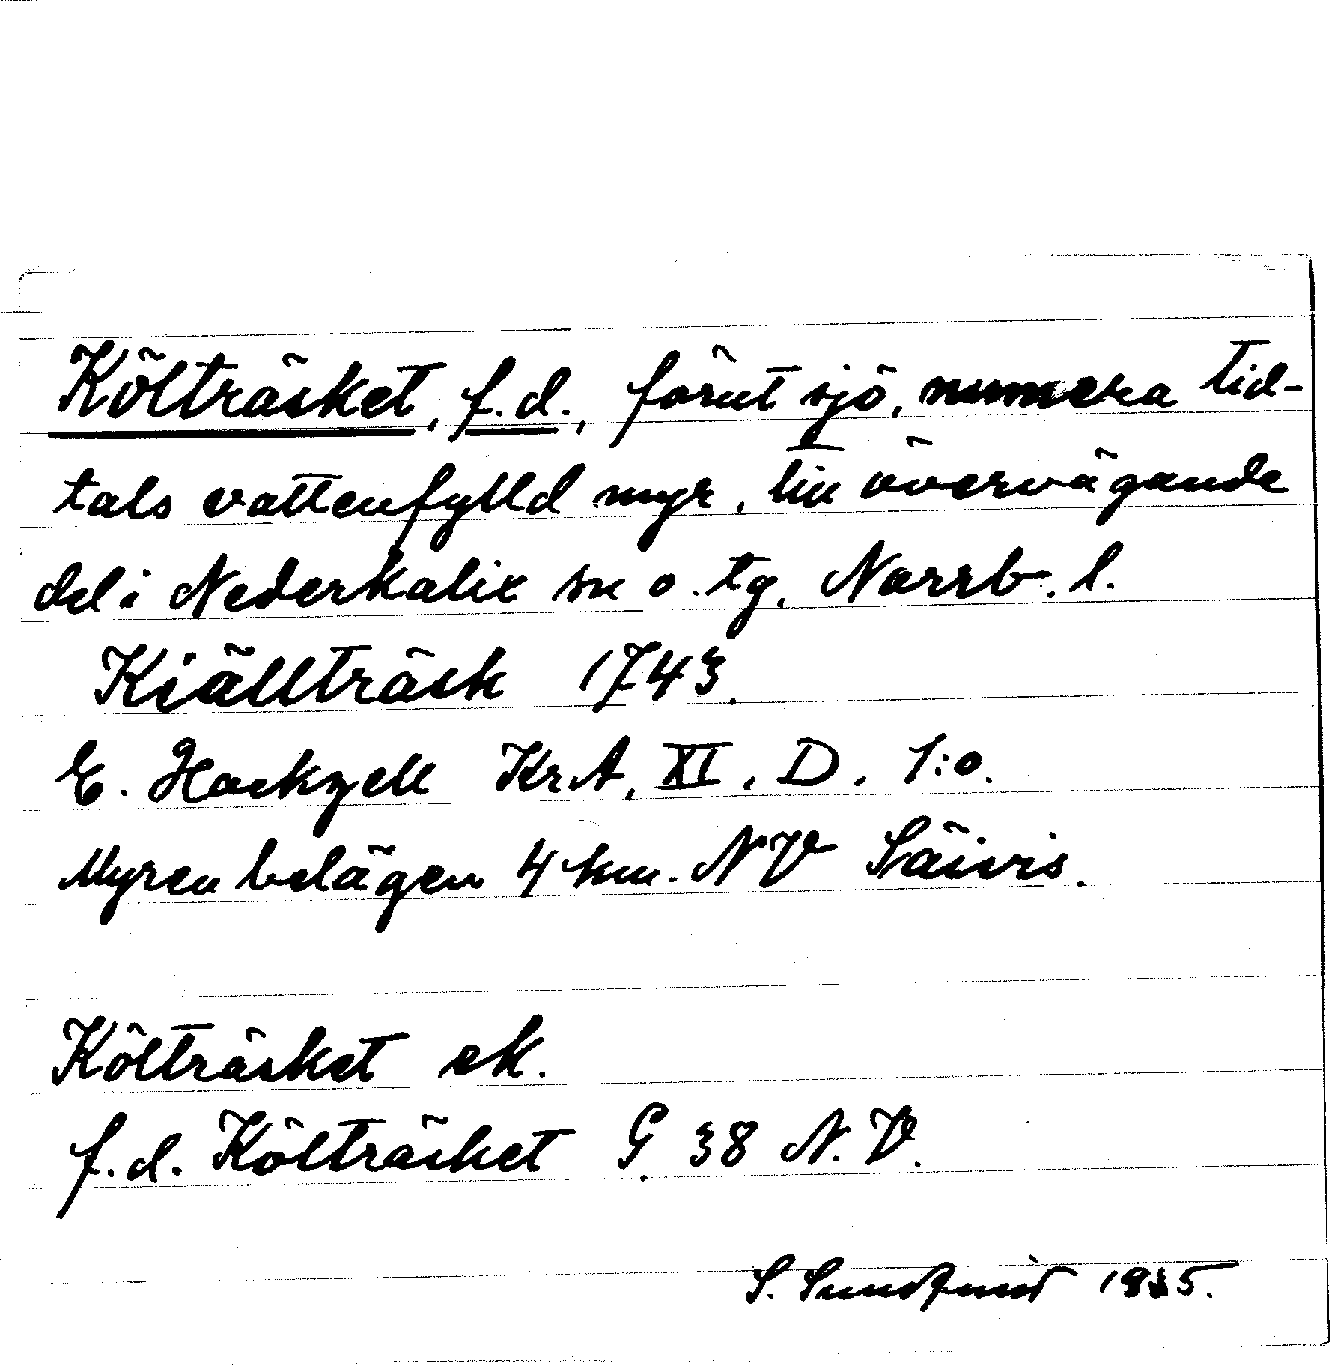 Költräsket, f.d., förut sjö, numera tid-
tals vattenfylld myr, till övervägande
del i Nederkalix sn o. tg. Norrb. l.
Kiällträsk 1743.
E. Hackzell KrA, XI, D, 1:o.
Myren belägen 4 km. NV Säivis.
Költräsket ek.
f.d. Költräsket G. 38 N.V.
S. Sundqvist